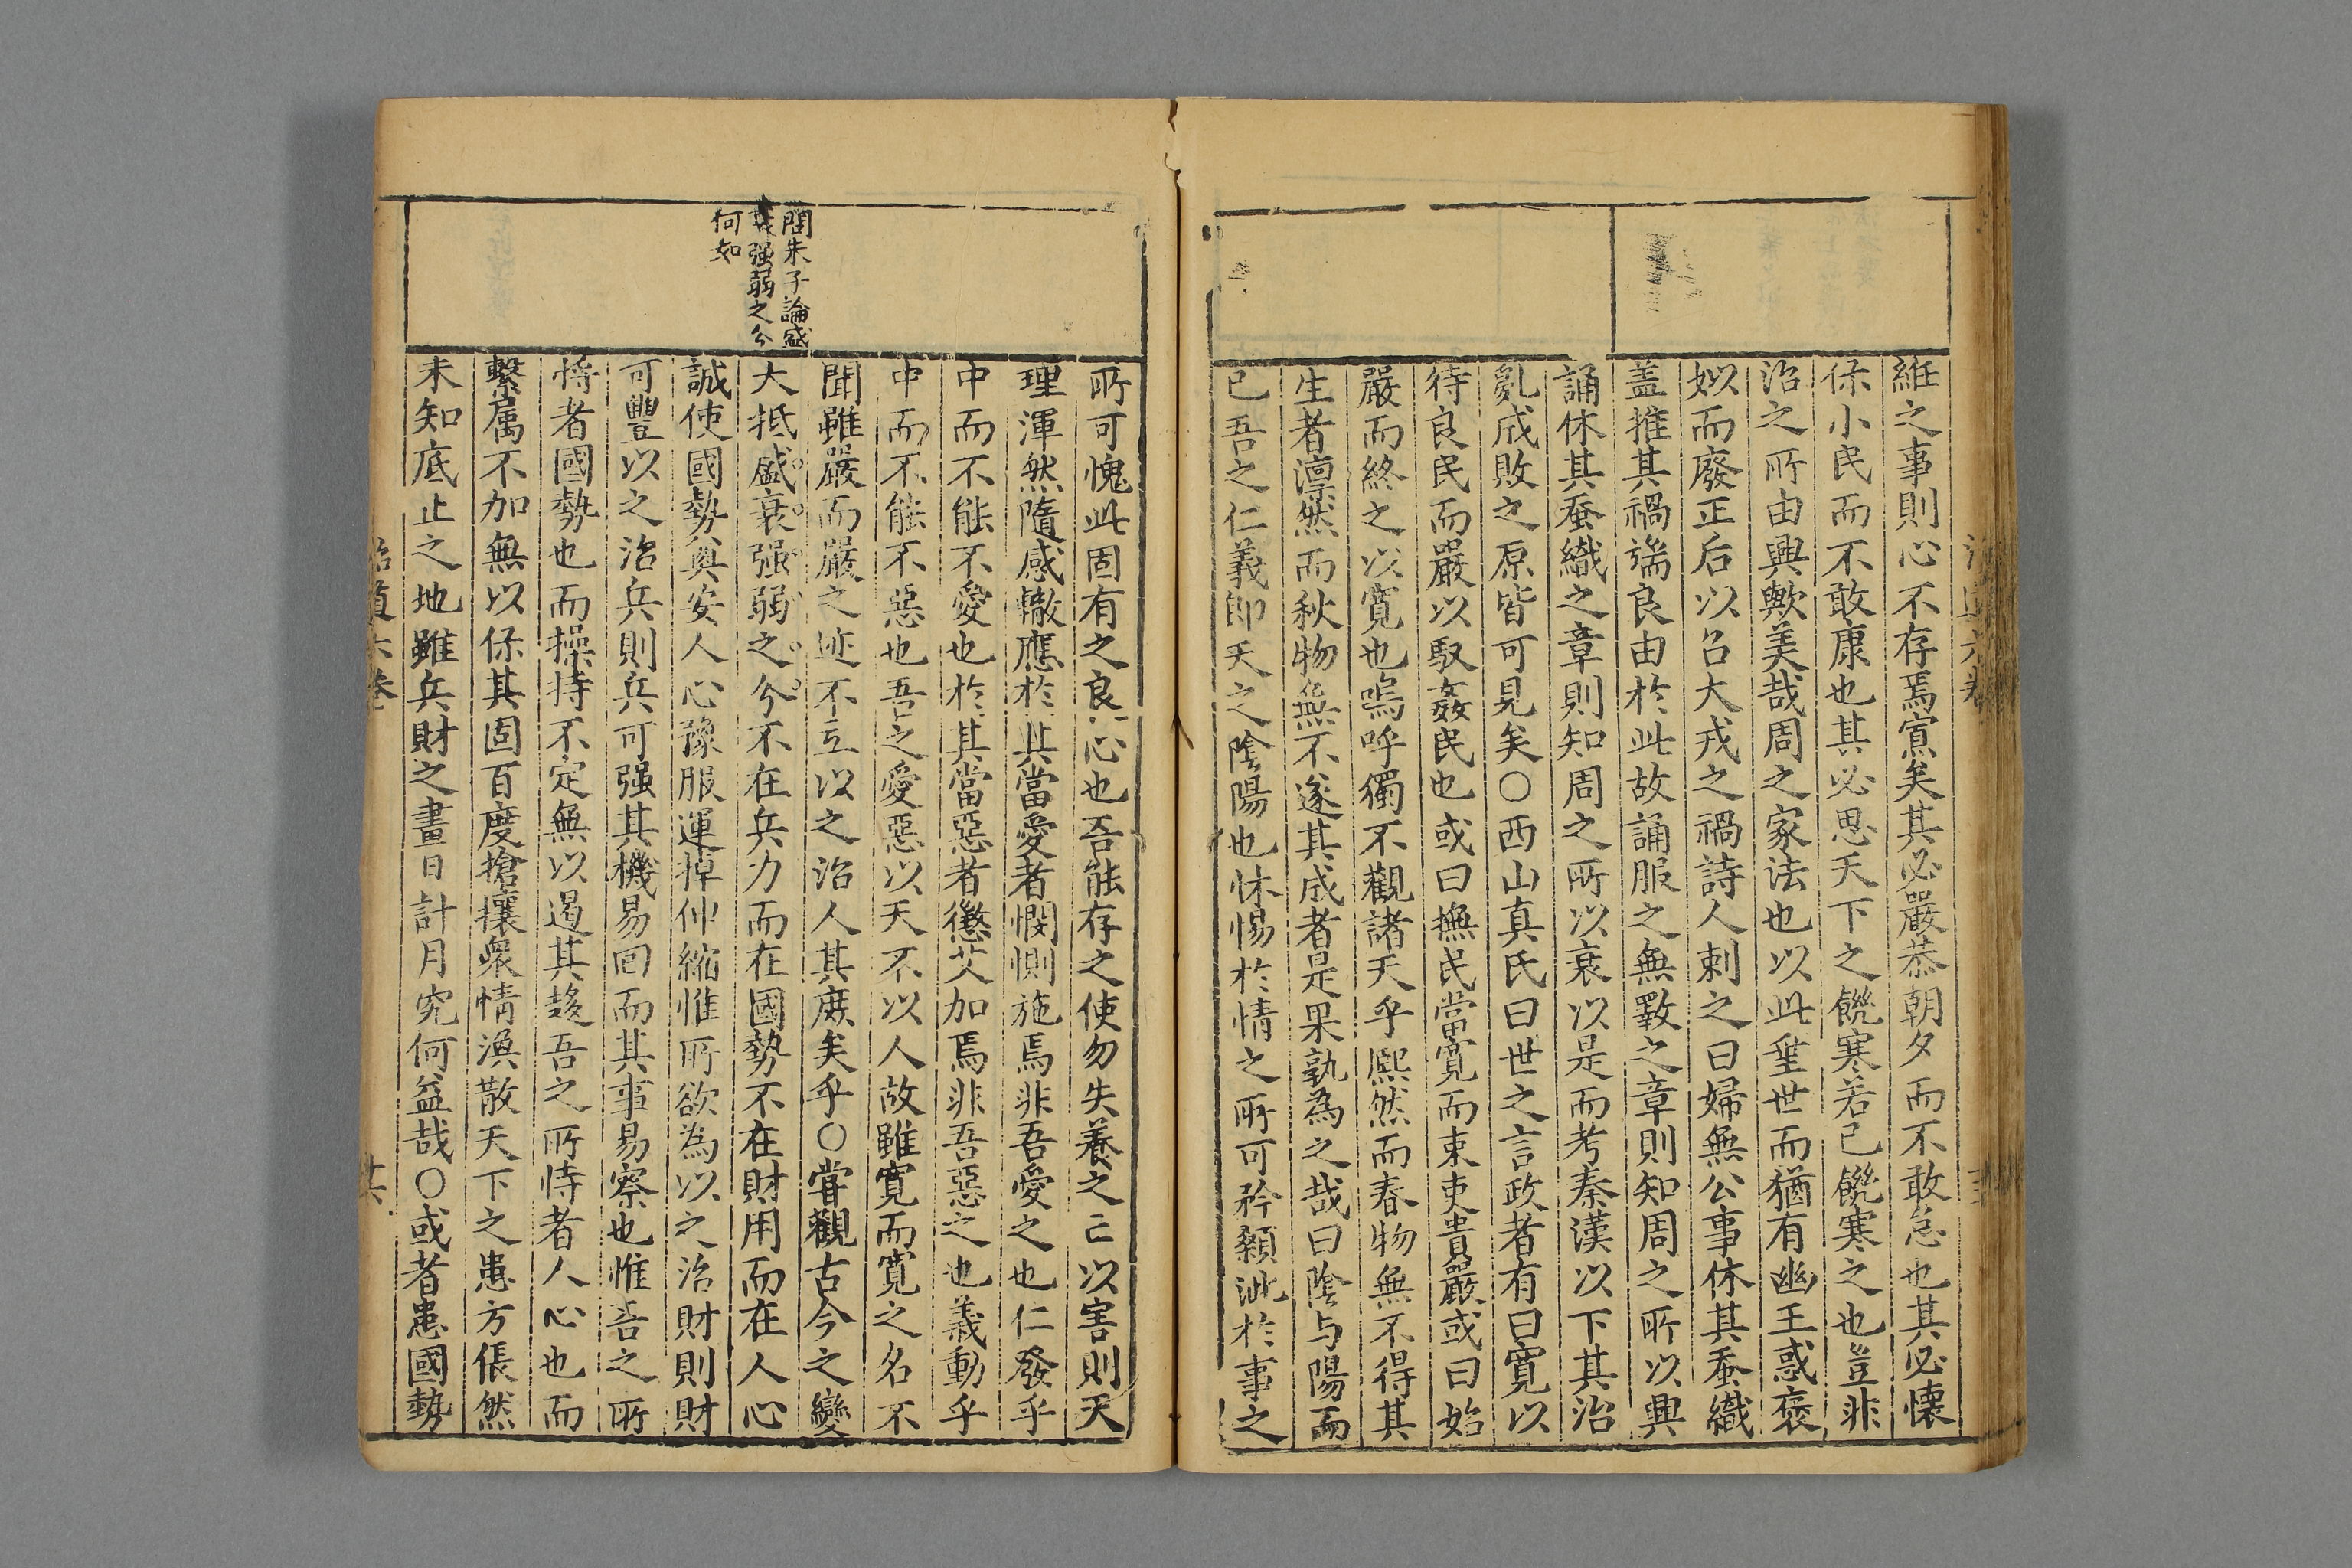 維之事則心不存焉寡矣其必嚴恭朝夕而不敢怠也其必懐
保小民而不敢康也其必思天下之饑寒若己饑寒之也豈非
治之所由興歟美哉周之家法也以此垂世而猶有幽王惑褒
姒而廢正后以召犬戎之禍詩人刺之曰婦無公事休其蚕織
盖推其禍端良由於此故誦服之無斁之章則知周之所以興
誦休其蚕織之章則知周之所以衰以是而考秦漢以下其治
亂成敗之原皆可見矣○西山真氏曰世之言政者有曰寛以
待良民而嚴以馭姦民也或曰撫民當寛而束吏貴嚴或曰始
嚴而終之以寛也嗚呼獨不觀諸天乎熙然而春物無不得其
生者凛然而秋物無不遂其成者是果孰為之哉曰陰与陽而
已吾之仁義即天之陰陽也怵惕於情之所可矜顙泚於事之
所可愧此固有之良心也吾能存之使勿失養之亡以害則天
理渾然隨感輙應於其當愛者憫惻施焉非吾愛之也仁發乎
中而不能不愛也於其當惡者懲艾加焉非吾惡之也義動乎
中而不能不惡也吾之愛惡以天不以人故雖寛而寛之名不
聞雖嚴而嚴之迹不立以之治人其庶矣乎○甞觀古今之變
問朱子論盛
衰强弱之分
何如
大抵盛衰强弱之分不在兵力而在國勢不在財用而在人心
誠使國勢奠安人心豫服運掉伸縮惟所欲為以之治財則財
可豐以之治兵則兵可强其機易回而其事易察也惟吾之所
恃者國勢也而操持不定無以遏其趍吾之所恃者人心也而
繫属不加無以保其固百度搶攘衆情渙散天下之患方倀然
未知底止之地雖兵財之畫日計月究何益哉○或者患國勢
治道六卷